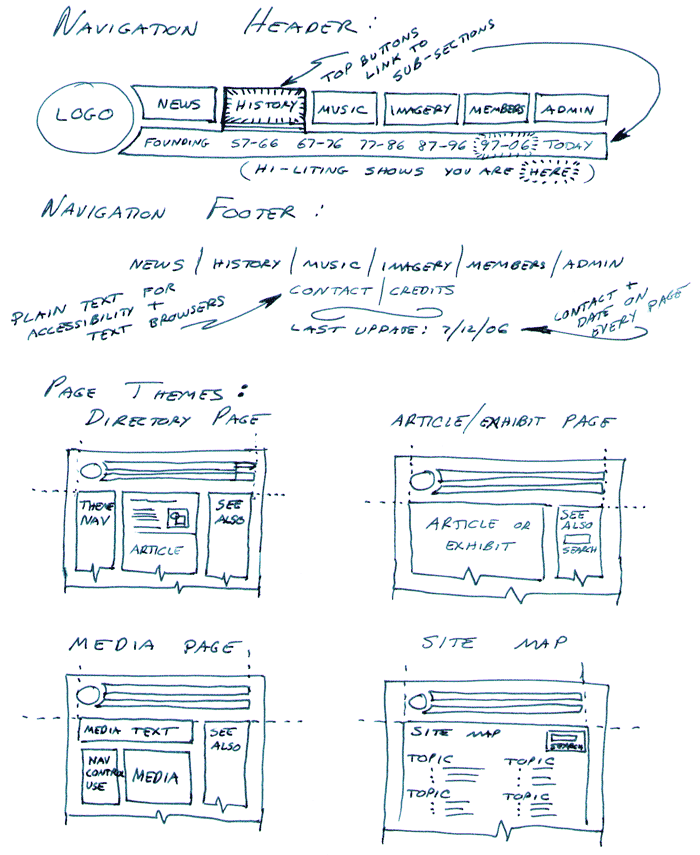 NAVIGATION HEADER:
TOP BUTTONS
LINK TO
SUB-SECTIONS
LOGO
NEWS HISTORY MUSIC IMAGERY MEMBERS ADMIN
FOUNDING 57-66 67-76 77-86 87-96 97-06 TODAY
(HI-LITING SHOWS YOU ARE HERE)
NAVIGATION FOOTER:
NEWS / HISTORY / MUSIC / IMAGERY / MEMBERS / ADMIN
CONTACT / CREDITS
LAST UPDATE: 7/12/06
PLAIN TEXT FOR
ACCESSIBILITY +
TEXT BROWSERS
CONTACT +
DATE ON
EVERY PAGE
PAGE THEMES:
DIRECTORY PAGE
THEME
NAV
ARTICLE
SEE
ALSO
ARTICLE/EXHIBIT PAGE
ARTICLE OR
EXHIBIT
SEE
ALSO
SEARCH
MEDIA PAGE
MEDIA TEXT
SEE
ALSO
NAV
CONTROL
USE
MEDIA
SITE MAP
SITE MAP
SEARCH
TOPIC TOPIC
TOPIC TOPIC